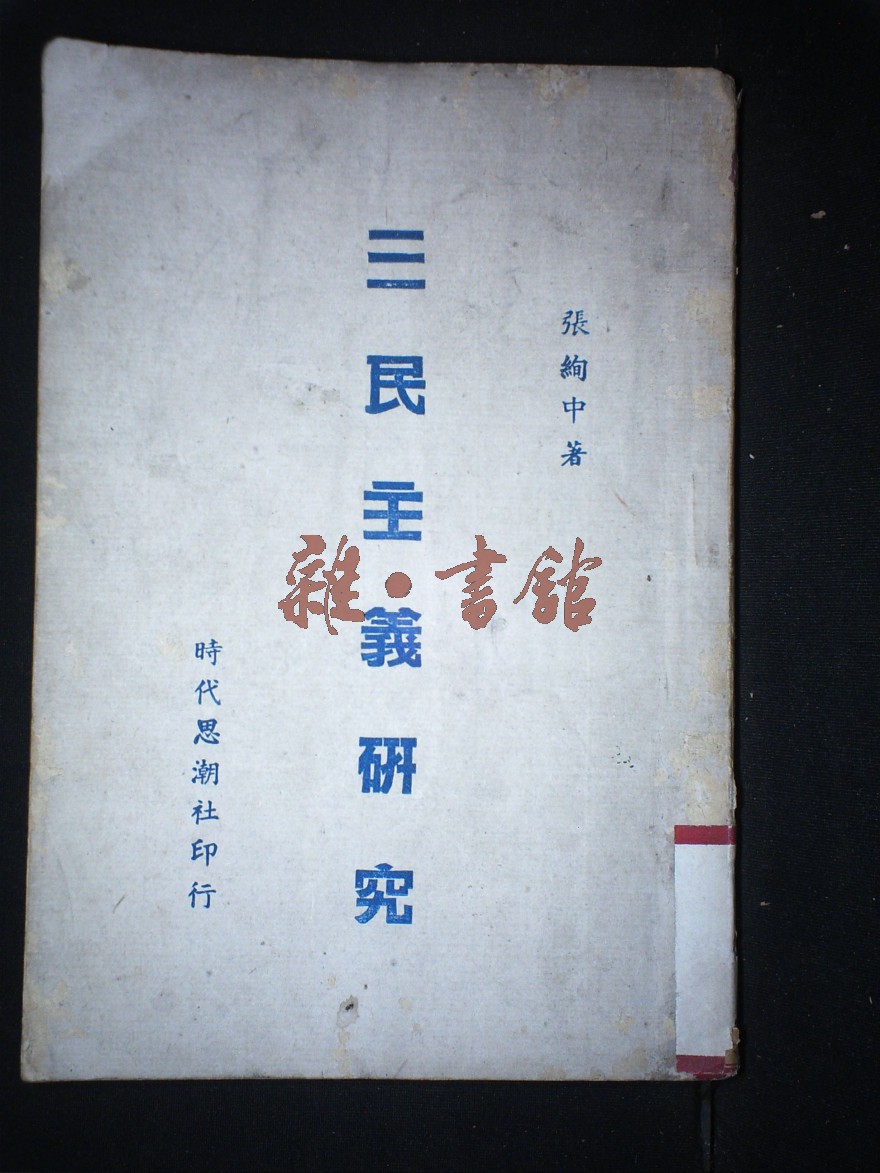 張絢中著
三民主義研究
時代思潮社印行
雜·書館